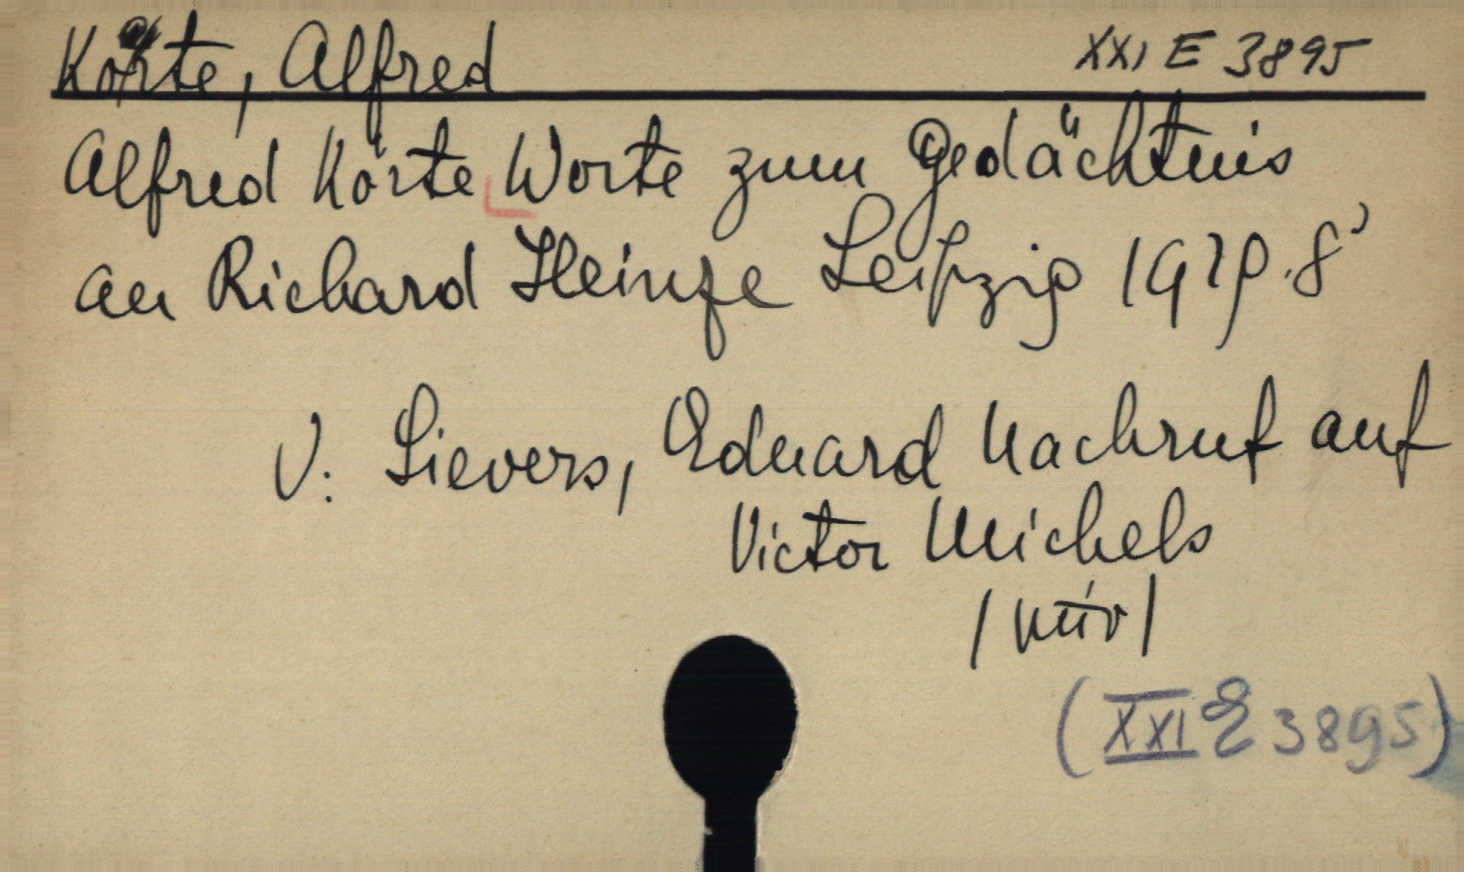 Körte, Alfred XXI E 3895
Alfred Körte Worte zum Gedächtnis
an Richard Heinze Leipzig 1929. 8°
V: Sievers, Eduard Nachruf auf
Victor Michels
(XXI E 3895)